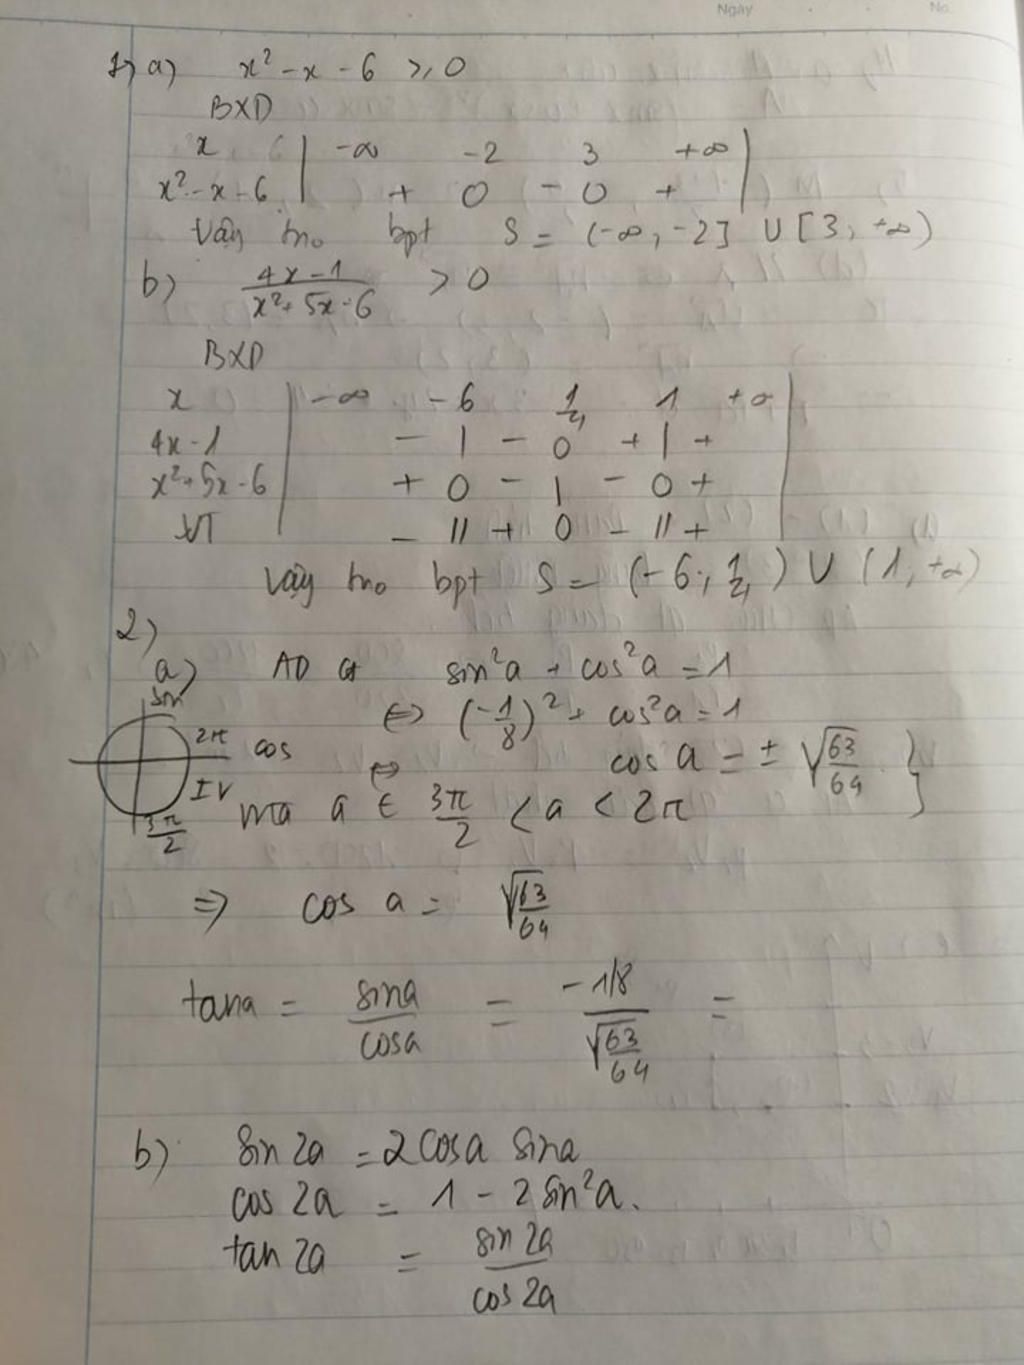 Ngày No.
1) a) x² - x - 6 ≥ 0
BXD
x | -∞ -2 3 +∞ |
x² - x - 6 | + 0 - 0 + |
Vậy tno bpt S = (-∞, -2] ∪ [3; +∞)
b) (4x - 1)/(x² + 5x - 6) > 0
BXD
x | -∞ -6 1/4 1 +∞ |
4x - 1 | - | - 0 + | + |
x² + 5x - 6 | + 0 - | - 0 + |
VT | - || + 0 - || + |
Vậy tno bpt S = (-6; 1/4) ∪ (1; +∞)
2)
a) AD ct sin²a + cos²a = 1
sin
⇔ (-1/8)² + cos²a = 1
2π cos
⇔ cos a = ± √(63/64) }
IV
mà a ∈ 3π/2 < a < 2π
3π/2
⇒ cos a = √(63/64)
tana = sina/cosa = (-1/8)/√(63/64) =
b) sin 2a = 2 cosa sina
cos 2a = 1 - 2 sin²a.
tan 2a = sin 2a/cos 2a